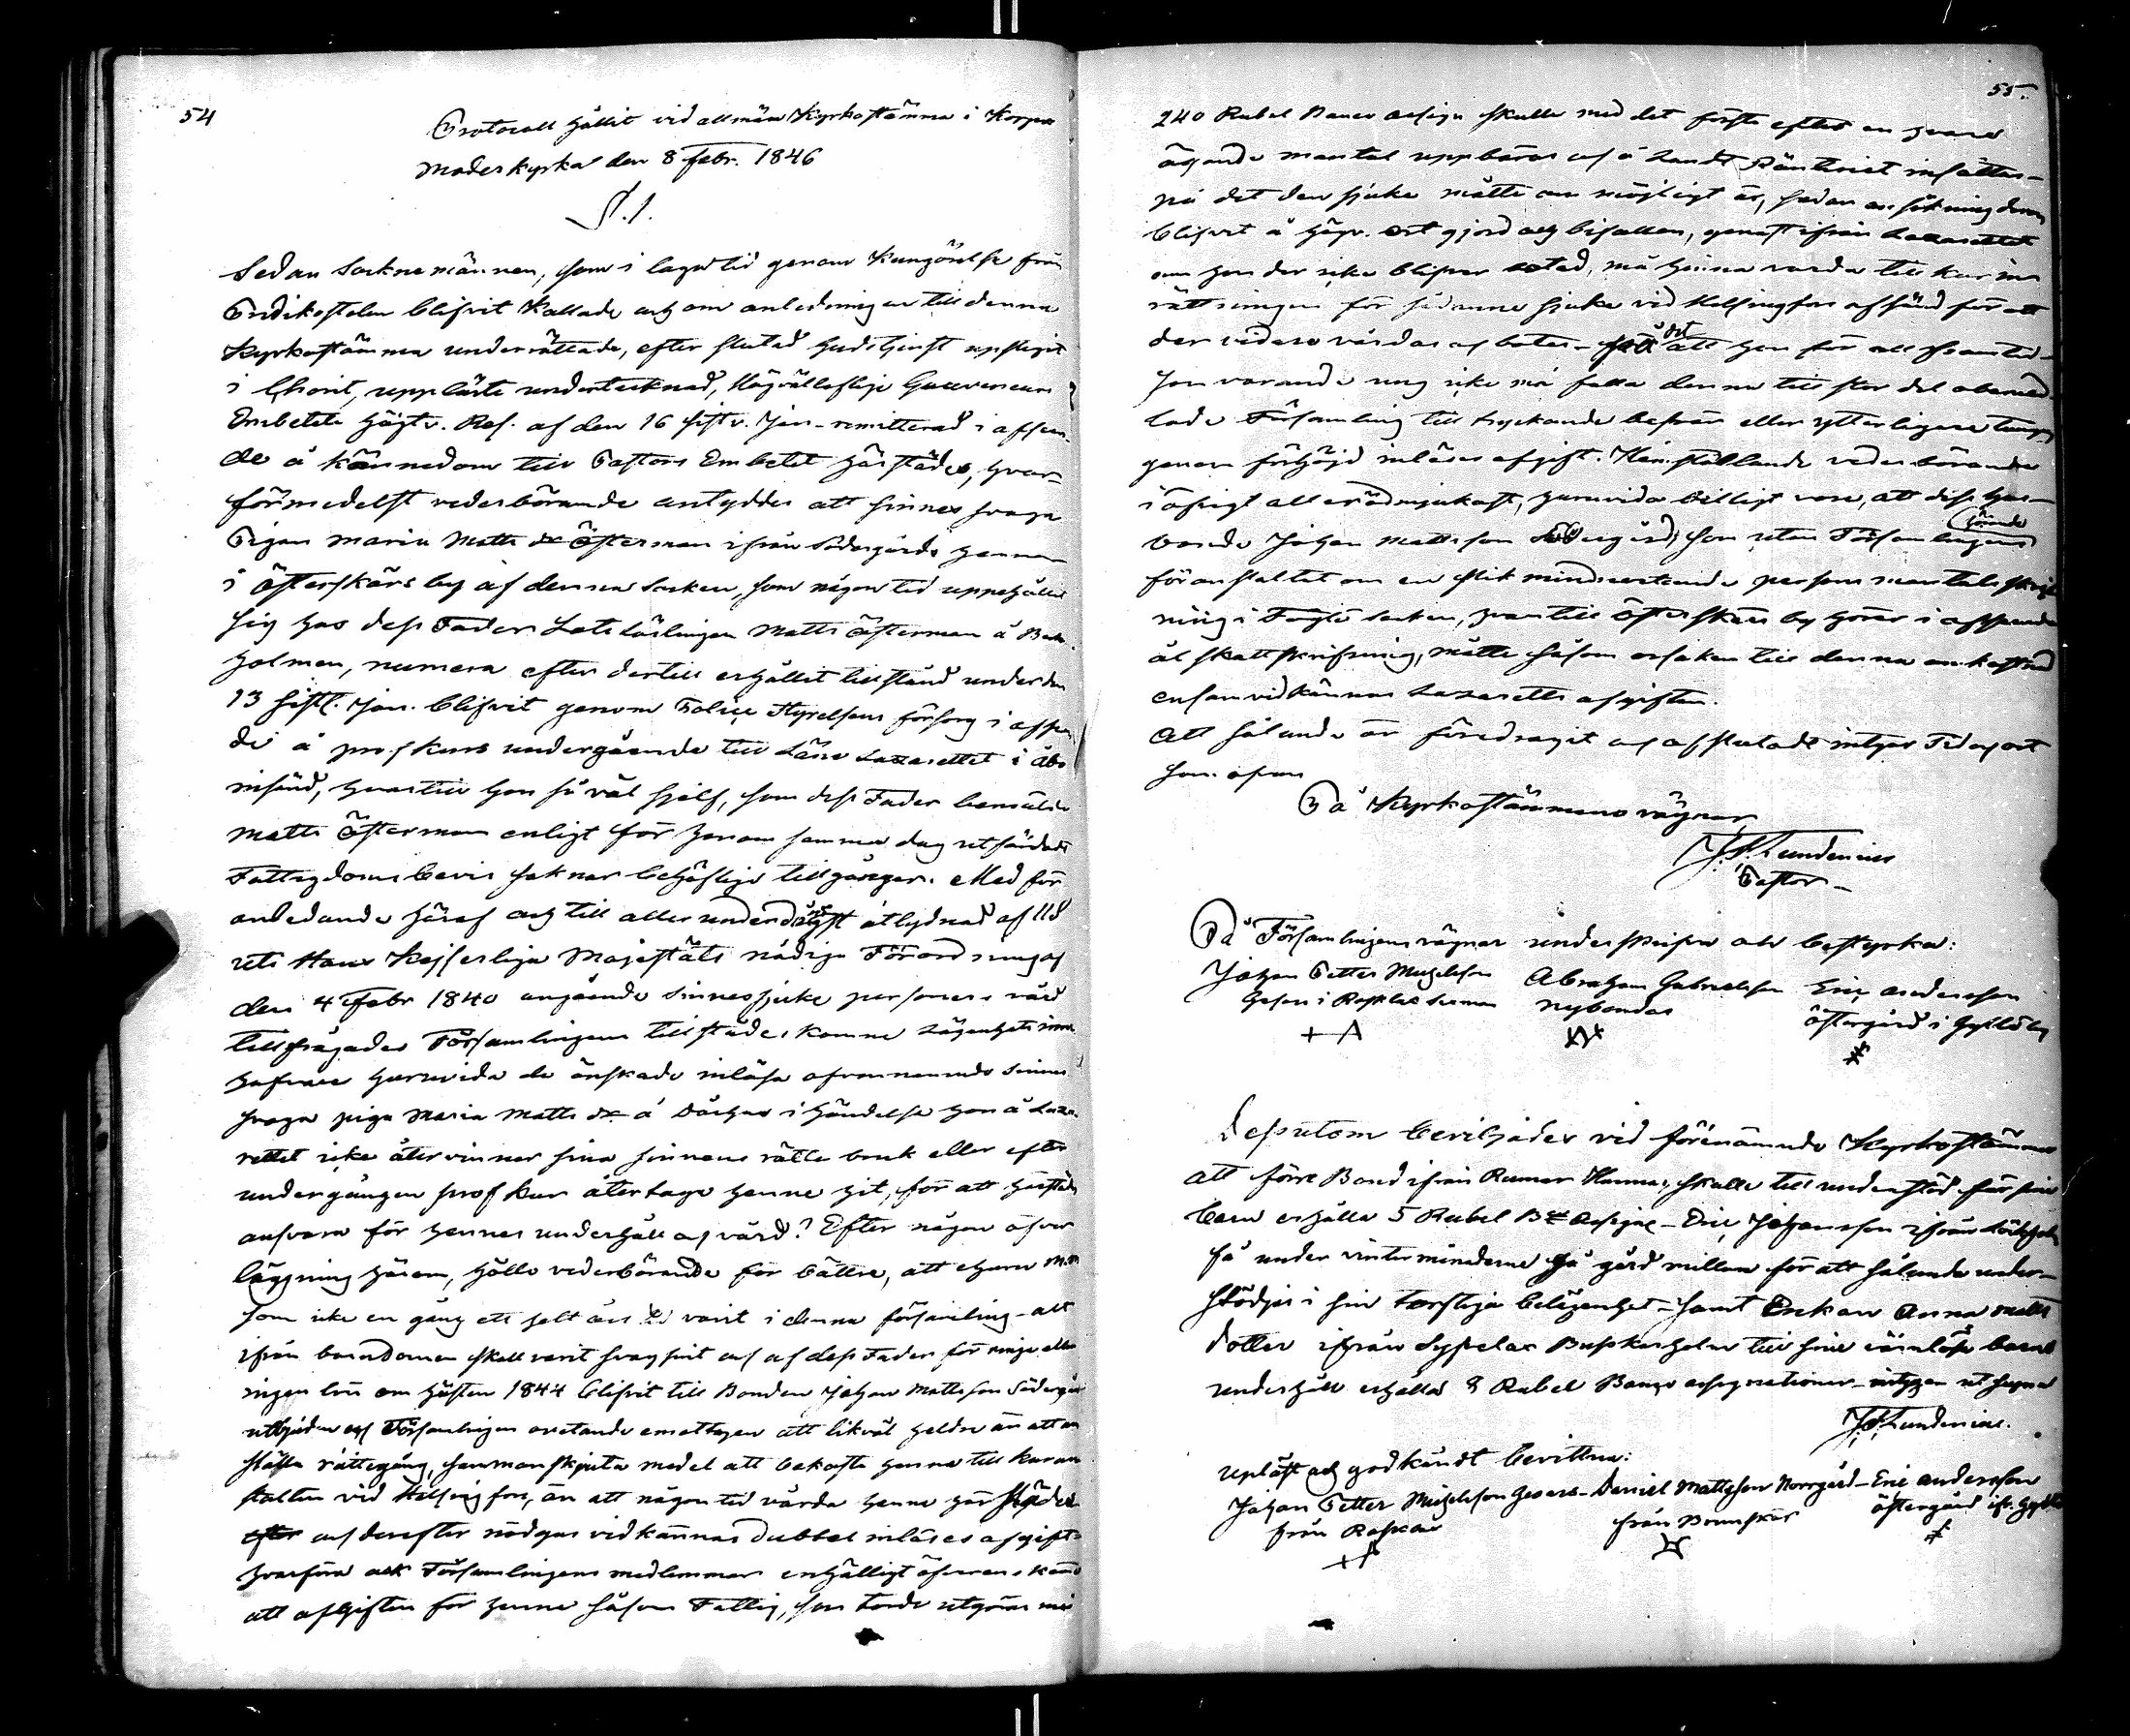 54
Protocoll hållit vid allmän Kyrkostämma i Korpo
Moderkyrka den 8 Febr. 1846
S. 1.
Sedan Socknemännen, som i laga tid genom Kungörelse från
Predikostolen blifvit kallade och om anledningen till denna
Kyrkostämma underrättade, efter slutad Gudstjenst upstigit
i Choret, uppläste undertecknad, Högvälloflige Gouverneurs
Embetets högtv. Res. af den 16 sistv. Jan. remitterad i afseen-
de å kännedom till Pastors Embetet härstädes, hvar-
förmedelst vederbörande antyddes att sinnes svaga
Pigan Maria Matts dr Österman ifrån Södergårds hemman
i Österskärs by af denna Socken, som någon tid uppehållit
sig hos dess Fader Lots Lärlingen Matts Österman å
holmen, numera efter dertill erhållit tillstånd under den
13 sistl. Jan. blifvit genom Police Styrelsens försorg i afseen
de å prof kurs undergående till Läns Lazarettet i Åbo
insänd, hvartill hon så väl sjelf, som dess Fader bemälde
Matts Österman enligt för honom samma dag utfärdadt
Fattigdoms bevis saknar behöflige tillgångar. Med för
anledande häraf och till allerunderdånigst åtlydnad af
Hans Kejserliga Majestäts nådiga Förordning af
den 4 Febr 1840 angående sinnessjuke personers vård
tillfrågades Församlingens tillstädes komne Lägenhets inne
hafvare huruvida de önskade inlösa ofvannämnde sinnes
svaga piga Maria Matts dr å i händelse hon å Laza-
rettet icke återvinner sina sinnens rätta bruk eller efter
undergången prof kur återtaga henne hit, för att härstädes
ansvara för hennes underhåll och vård? Efter någon öfver
läggning härom, höllo vederbörande för bättre, att ehuru
som icke en gång ett helt års tid varit i denna församling - att
ifrån barndomen skall varit svagsint och af dess Fader för ringa eller
ingen lön om hösten 1844 blifvit till Bonden Johan Mattsson Södergård
utbjuden och Församlingen ovetande emottagen att likväl heldre än att an
ställa rättegång, sammanskjuta medel att bekosta henne till kuran
stalten vid Helsingfors, än att någon tid vårda henne härstädes
efter och derefter nödgas vidkännas dubbel inlösesafgift
hvarföre ock Församlingens medlemmar enhälligt öfverens kommo
att afgiften för henne såsom Fattig, som torde utgöras med
55.
240 Rubel Banco Assign. skulle med det första efter en hvars
ägande mantal uppbäras och å Lands Ränteriet insättas -
på det den sjuka måtte om möjligt är, sedan ansökning derom
blifvit å högv. ort gjord och bifallen, genast ifrån Lazarettet
om hon der icke blifver botad, må hinna varda till kur in
rättningen för sådanna sjuka vid Helsingfors afsänd för att
der vidare vårdas och botas - på det att hon för all framtid -
som varande ung icke må falla denna till stor del obemed
lade Församling till tryckande besvär eller ytterligare tunga
genom förhöjd inlöses afgift. Hemställande vederbörande
i öfrigt allerödmjukast, huruvida billigt vore, att dess hus-
bonde Johan Mattsson Södergård, som utan Församlingens hörande
föranstaltat om en slik mindre vetande persons mantalsskrif
ning i Föglö socken, hvartill Österskärs by hörer i afseende
åt skattskrifning, måtte såsom orsaken till denna omkostnad
ensam vidkännas Lazaretts afgiften.
Att sålunda är föredragit och afslutadt intygas Tid och ort
som ofvan
På Kyrkostämmans vägnar
J. S. Lundenius
Pastor -
På Församlingens vägnar underskrifva och bestyrka:
Johan Petter Michelsson Abraham Gabrielsson Eric Andersson
Nybondas Östergård i Gyttö by
Dessutom beviljades vid förenämnde Kyrkostämma
att förre Bond ifrån Rumar Hannas, skulle till understöd för sina
barn erhålla 5 Rubel Bco Assigne - Eric Johansson ifrån
få under vintermånaderne gå gård millan för att sålunda under-
stödjas i sin torftiga belägenhet - samt Enkan Anna Matts
dotter ifrån Buskarholm till sina värnlösa barns
underhåll erhålla 8 Rubel Banco assignationer - intygar ut supra
J. S. Lundenius.
Upläst och godkändt bevittna:
Johan Petter Michelsson - Daniel Mattsson Norrgård - Eric Andersson
från från Brunskär Östergård ifr. Gyttö